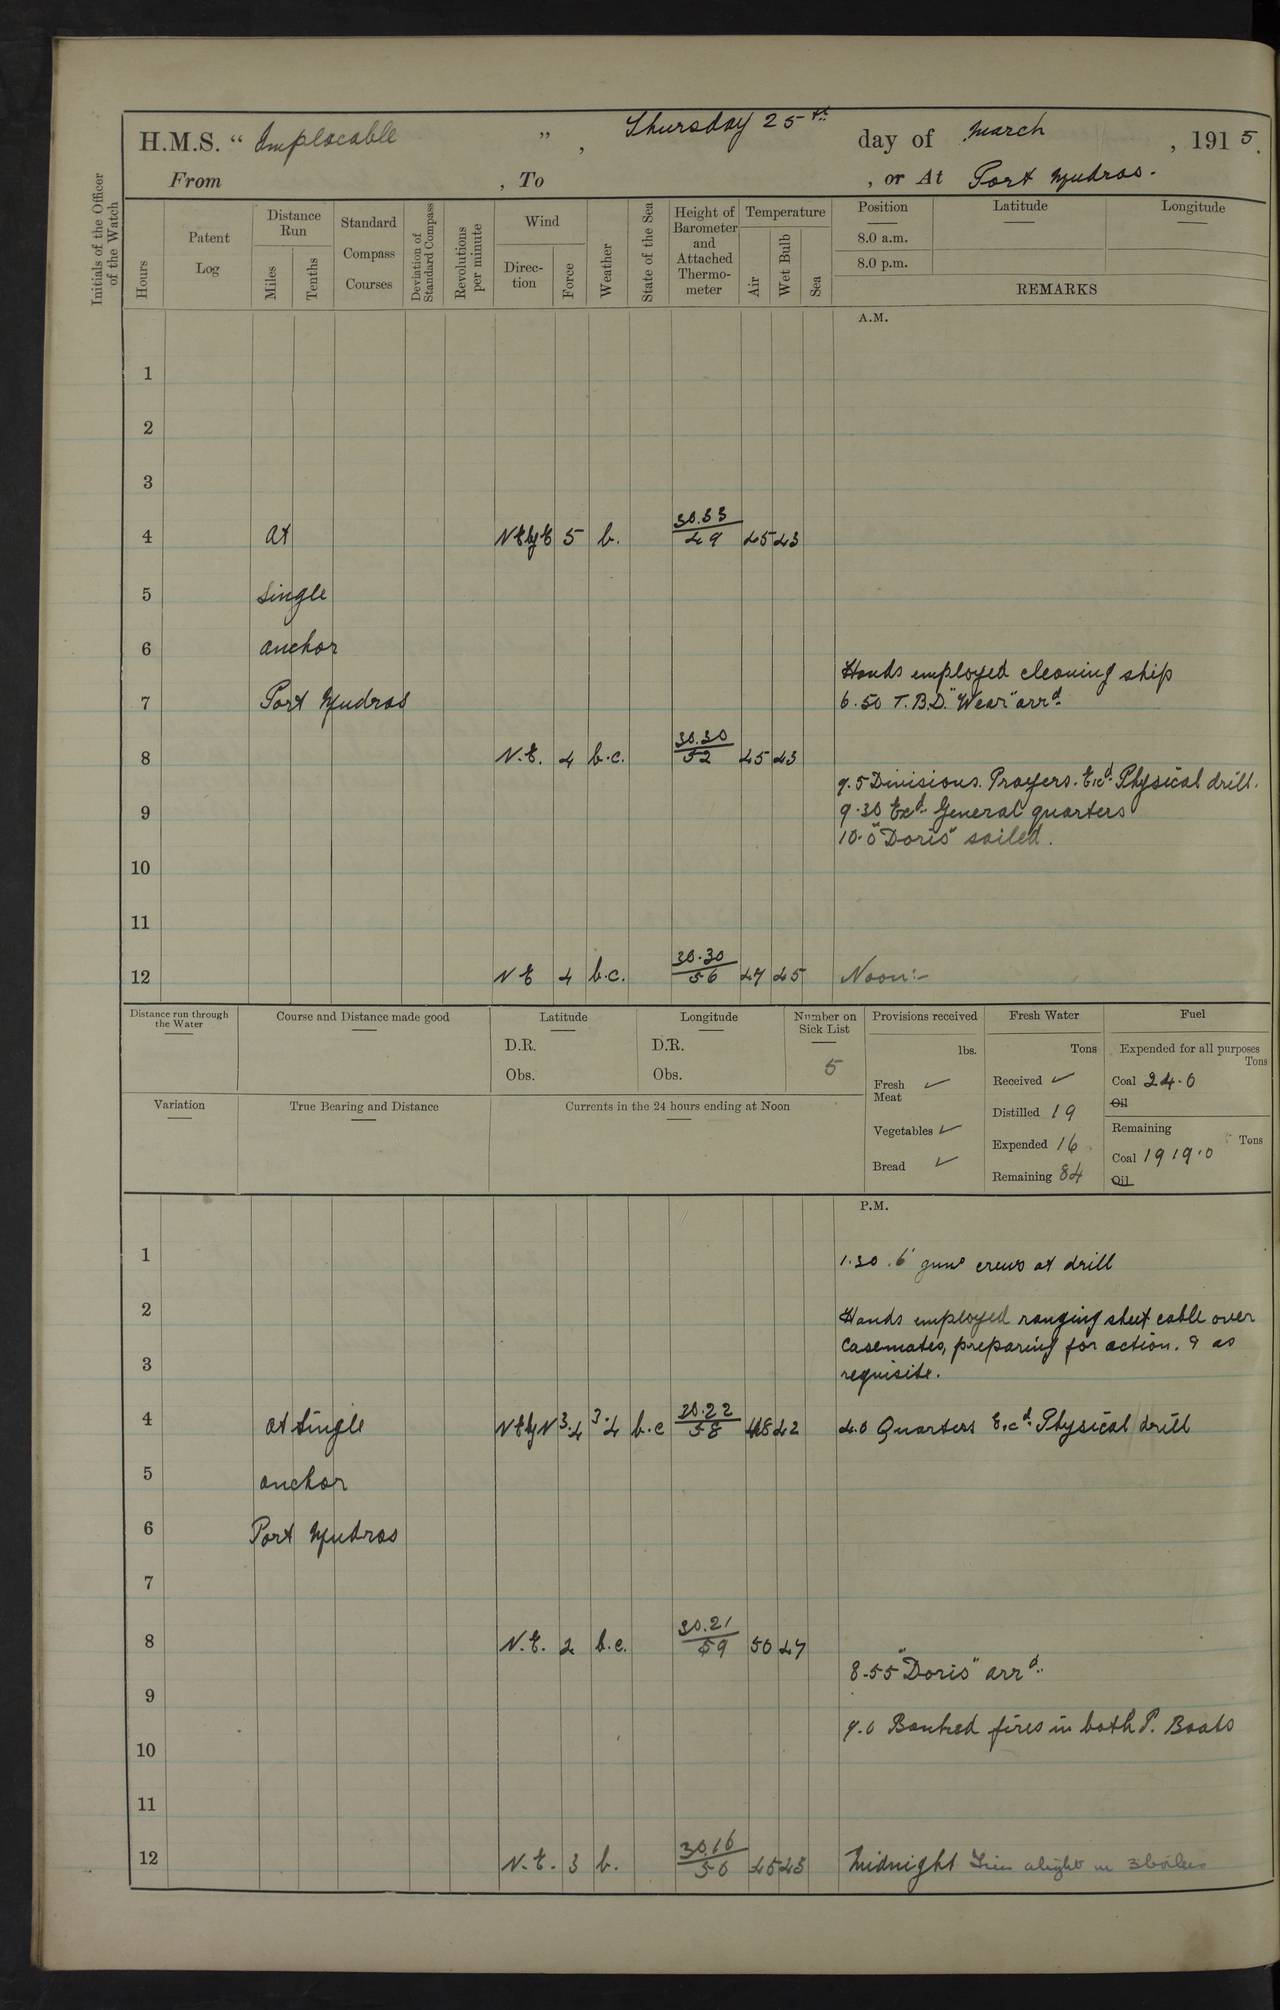 H.M.S. “ Implacable ”, Thursday 25th day of March, 1915.
From , To , or At Port Mudros.
Initials of the Officer of the Watch
Hours
Patent Log
Distance Run
Miles
Tenths
Standard Compass Courses
Deviation of Standard Compass
Revolutions per minute
Wind
Direc-tion
Force
Weather
State of the Sea
Height of Barometer and Attached Thermo-meter
Temperature
Air
Wet Bulb
Sea
Position Latitude Longitude
8.0 a.m.
8.0 p.m.
REMARKS
A.M.
1
2
3
4 at NEbyE 5 b. 30.33/49 45 43
5 Single
6 anchor
Hands employed cleaning ship
7 Port Mudros 6.50 T.B.D. "Wear" arrd.
8 N.E. 4 b.c. 30.30/52 45 43
9.5 Divisions. Prayers. Exd. Physical drill.
9 9.30 Exd. General quarters
10.0 "Doris" sailed.
10
11
12 NE 4 b.c. 30.30/56 47 45 Noon:-
Distance run through the Water
Course and Distance made good
Latitude
D.R.
Obs.
Longitude
D.R.
Obs.
Number on Sick List
5
Provisions received
lbs.
Fresh Meat ✓
Vegetables ✓
Bread ✓
Fresh Water
Tons
Received ✓
Distilled 19
Expended 16
Remaining 84
Fuel
Expended for all purposes
Tons
Coal 24.0
Oil
Remaining
Tons
Coal 1919.0
Oil
Variation
True Bearing and Distance
Currents in the 24 hours ending at Noon
P.M.
1 1.30 6" guns crews at drill
2 Hands employed ranging sheet cable over
casemates, preparing for action. & as
3 requisite.
4 at single NEbyN 3.4 3.4 b.c 30.22/58 48 42 4.0 Quarters Exd. Physical drill
5 anchor
6 Port Mudros
7
8 N.E. 2 b.c. 30.21/59 50 47
8.55 "Doris" arrd.
9
9.0 Banked fires in both P. Boats
10
11
12 N.E. 3 b. 30.16/56 45 43 Midnight Fires alight in 3 boilers